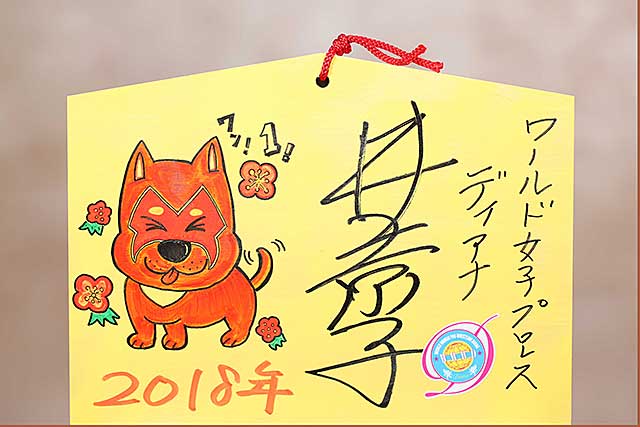 ワールド女子プロレス
ディアナ
井上京子
ワン!1!
2018年